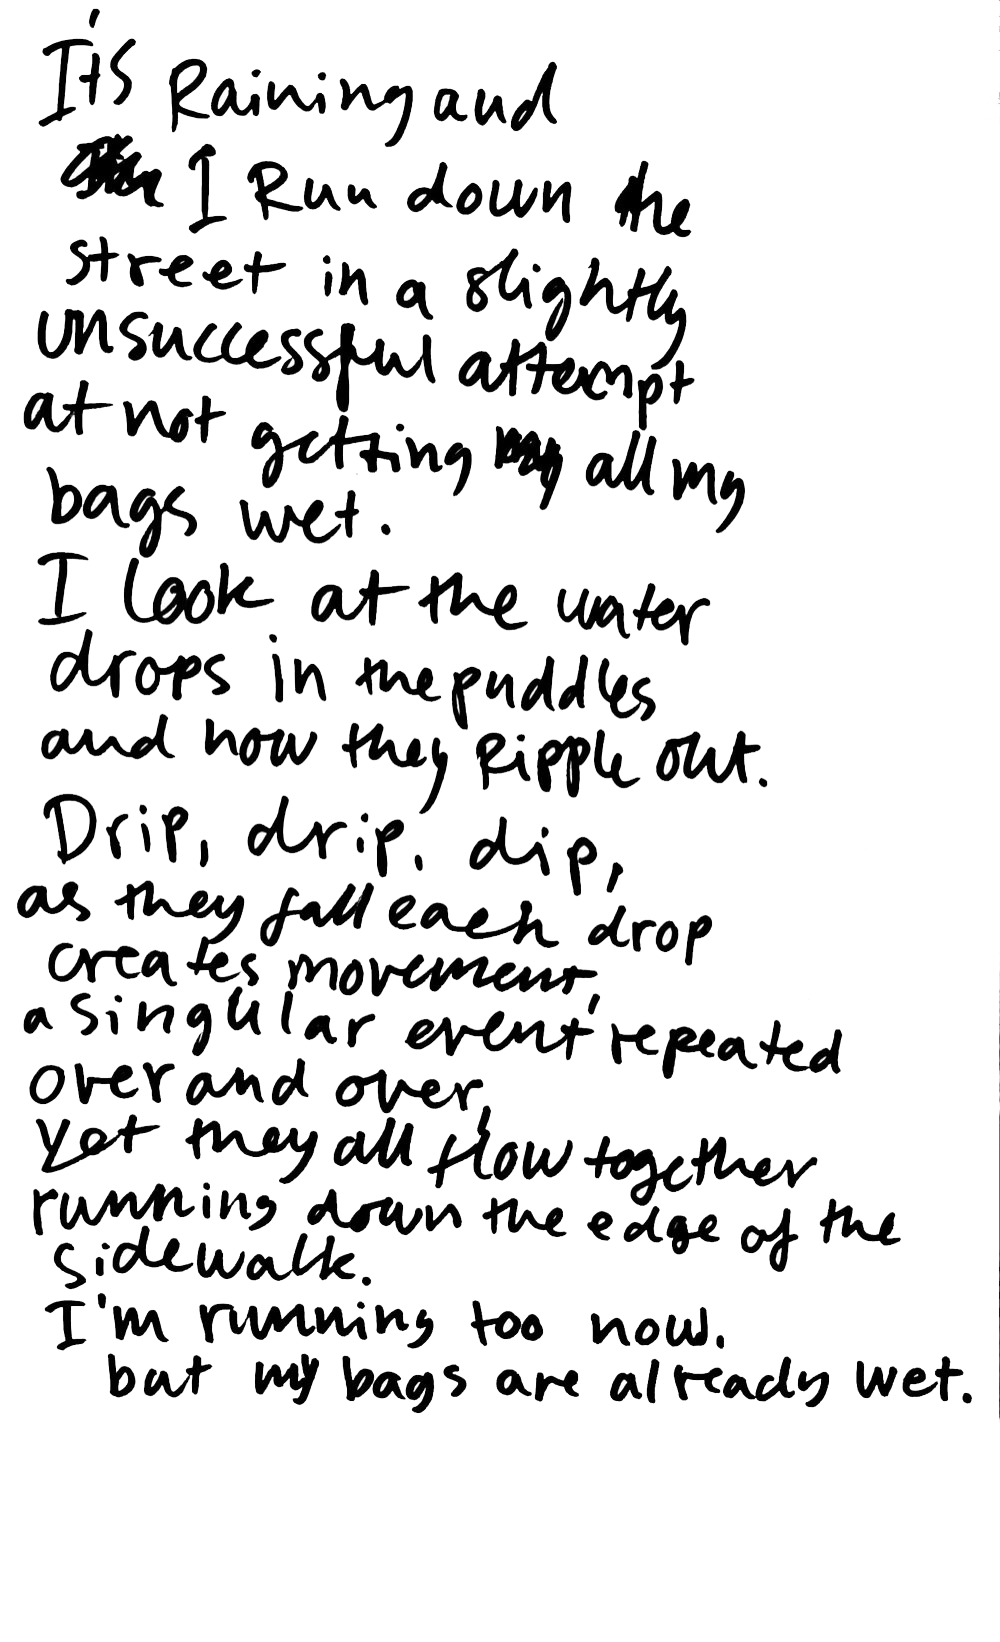 It's Raining and
I Run down the
street in a slightly
unsuccessful attempt
at not getting all my
bags wet.
I look at the water
drops in the puddles
and how they Ripple out.
Drip, drip, dip,
as they fall each drop
creates movement,
a singular event repeated
over and over,
yet they all flow together
running down the edge of the
sidewalk.
I'm running too now.
but my bags are already wet.